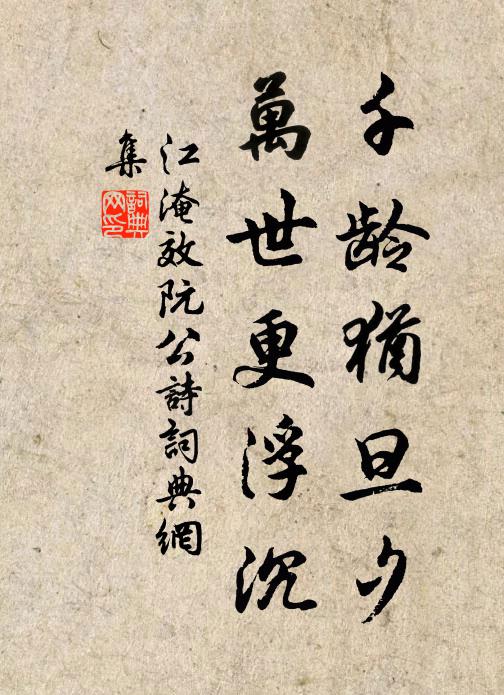 千龄猶旦夕
萬世更浮沉
江淹效阮公詩詞典網
集
詞典
网印